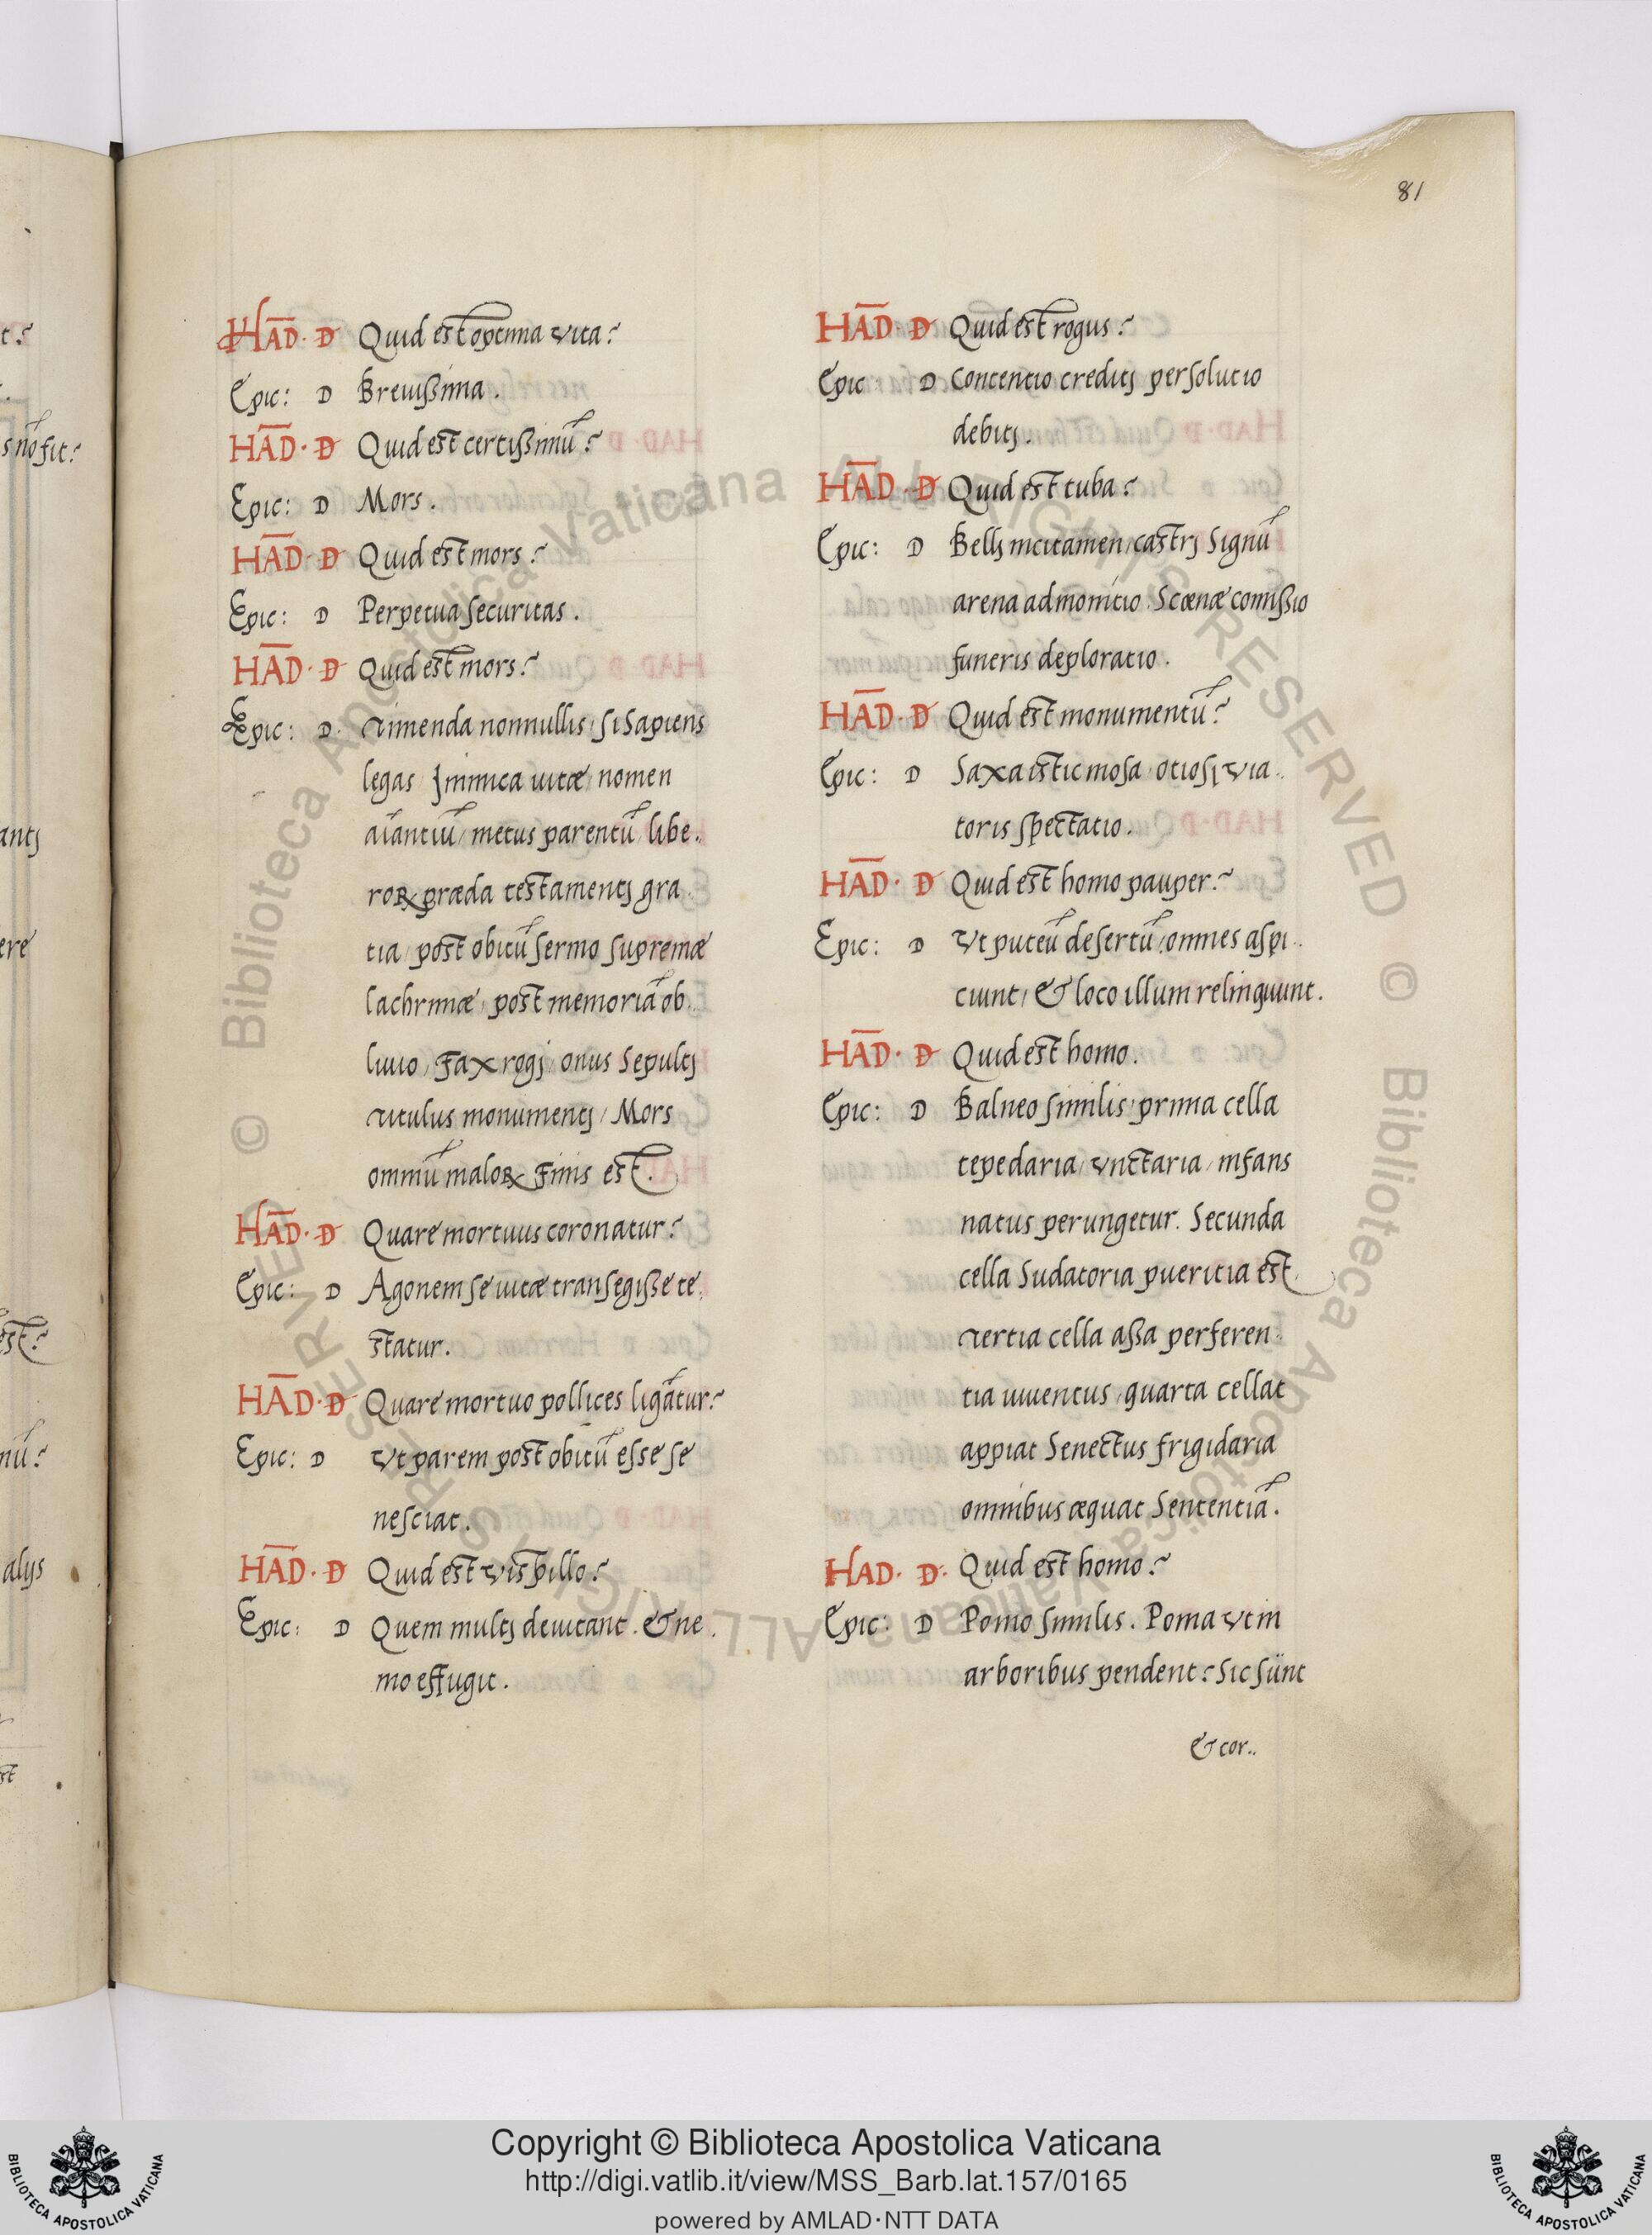 81
HAD̅· D Quid est optima vita?
Epic: D Breuissima.
HAD̅· D Quid est certissimū?
Epic: D Mors.
HAD̅· D Quid est mors?
Epic: D Perpetua securitas.
HAD̅· D Quid est mors?
Epic: D. Timenda nonnullis, si Sapiens
legas, Inimica uitæ, nomen
aīantiū, metus parentū, libe.
roꝝ præda testamentj gra.
tia, post obitū sermo supremæ
lachrimæ, post memoriā ob.
liuio, Fax rogj, onus Sepultj
Titulus monumentj, Mors
omniū maloꝝ Finis est.
HAD̅· D Quare mortuus coronatur?
Epic: D Agonem se uitæ transegisse te.
statur.
HAD̅· D Quare mortuo pollices ligātur?
Epic: D Vt parem post obitū esse se
nesciat.
HAD̅· D Quid est vispillo?
Epic: D Quem multj deuitant. & ne.
mo effugit.
HAD̅· D Quid est rogus?
Epic: D Contentio creditj persolutio
debitj.
HAD̅· D Quid est tuba?
Epic: D Bellj incitamen, castrj Signū
arena admonitio. Scœnæ comissio
funeris deploratio.
HAD̅· D Quid est monumentū?
Epic: D Saxa istic mosa, otiosj via.
toris spectatio.
HAD̅· D Quid est homo pauper?
Epic: D Vt puteū desertū, omnes aspi.
ciunt, & loco illum relinquunt.
HAD̅· D Quid est homo.
Epic: D Balneo similis, prima cella
tepedaria, vnctaria, infans
natus perungetur. Secunda
cella Sudatoria pueritia est.
Tertia cella assa perferen.
tia iuuentus, quarta cellat
appiat Senectus frigidaria
omnibus æquat Sententiā.
HAD. D. Quid est homo?
Epic: D Pomo similis. Poma vt in
arboribus pendent? Sic sunt
& cor..
Copyright © Biblioteca Apostolica Vaticana
http://digi.vatlib.it/view/MSS_Barb.lat.157/0165
powered by AMLAD·NTT DATA
BIBLIOTECA APOSTOLICA VATICANA
BIBLIOTECA APOSTOLICA VATICANA